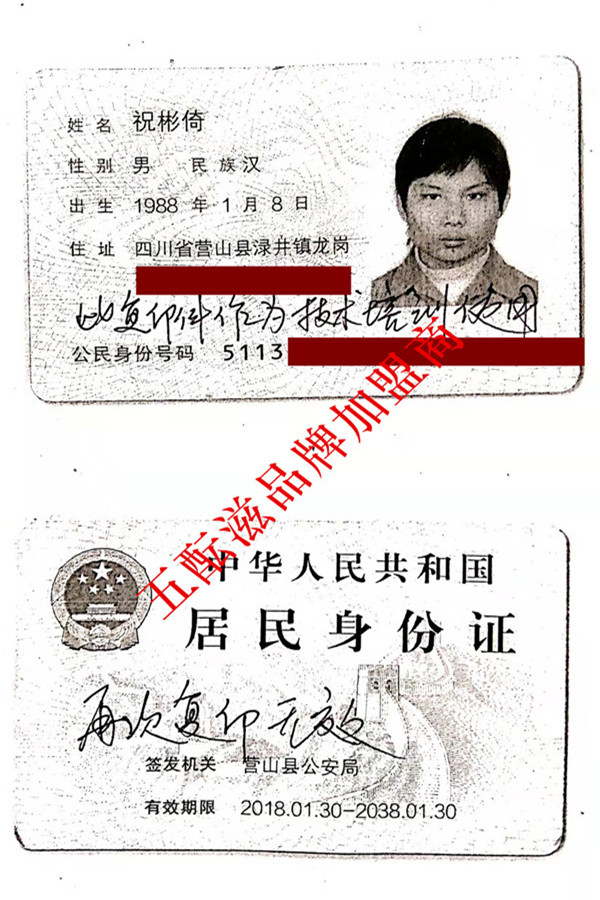 姓名 祝彬倚
性别 男 民族 汉
出生 1988 年 1 月 8 日
住址 四川省营山县渌井镇龙岗
此复印件作为技术培训使用
公民身份号码 5113
五酝滋品牌加盟商
中华人民共和国
居民身份证
再次复印无效
签发机关 营山县公安局
有效期限 2018.01.30-2038.01.30